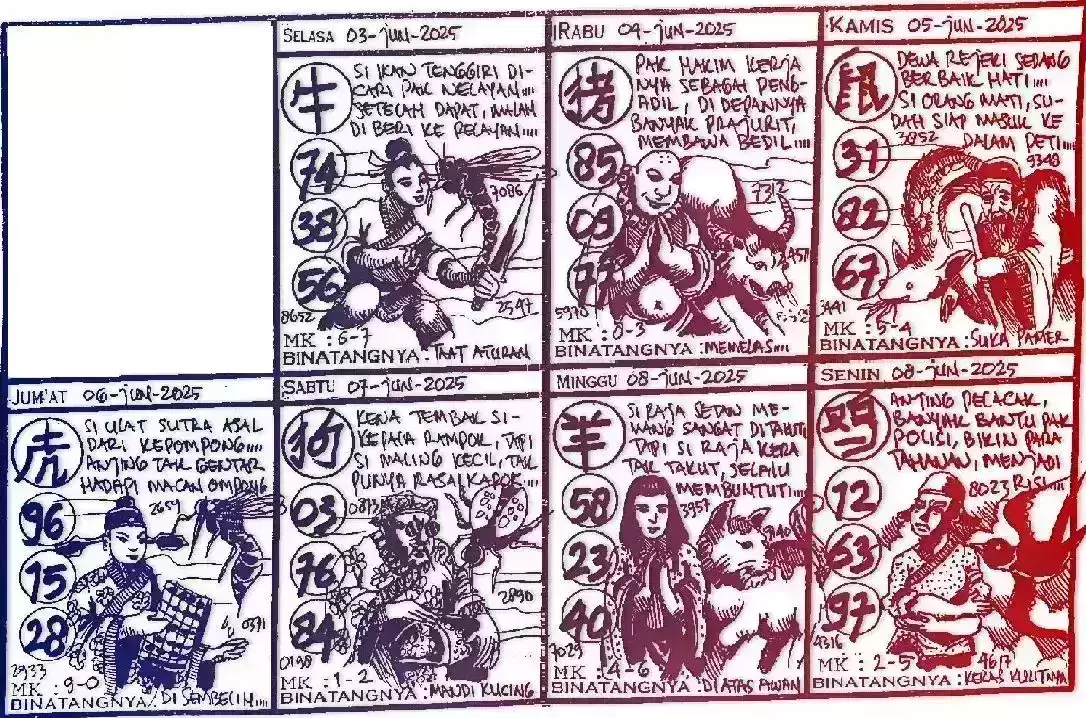 SELASA 03-JUN-2025
牛
SI IKAN TENGGIRI DI-
CARI PAK NELAYAN....
SETELAH DAPAT, MALAH
DI BERI KE PELAYAN....
74
38
56
7086
2597
8652
MK : 6-7
BINATANGNYA : TAAT ATURAN
RABU 04-JUN-2025
猪
PAK HAKIM KERJA
NYA SEBAGAI PENG-
ADIL, DI DEPANNYA
BANYAK PRAJURIT,
MEMBAWA BEDIL....
85
09
77
7312
5970
MK : 0-3
BINATANGNYA : MEMELAS....
KAMIS 05-JUN-2025
鼠
DEWA REJEKI SEDANG
BERBAIK HATI....
SI ORANG MATI, SU-
DAH SIAP MASUK KE
DALAM PETI....
31
82
67
3852
9348
3441
MK : 5-4
BINATANGNYA : SUKA PAMER
JUM'AT 06-JUN-2025
虎
SI ULAT SUTRA ASAL
DARI KEPOMPONG....
ANJING TAK GENTAR
HADAPI MACAN OMPONG
96
15
28
2659
0371
2933
MK : 9-0
BINATANGNYA : DI SEMBELIH....
SABTU 07-JUN-2025
狗
KENA TEMBAK SI-
KEPALA RAMPOK, TAPI
SI MALING KECIL, TAK
PUNYA RASA KAPOK....
03
76
84
0813
2890
0198
MK : 1-2
BINATANGNYA : MANDI KUCING
MINGGU 08-JUN-2025
羊
SI RAJA SETAN ME-
MANG SANGAT DITAKUTI
TAPI SI RAJA KERA
TAK TAKUT, SELALU
MEMBUNTUTI....
58
23
40
3957
7029
MK : 4-6
BINATANGNYA : DI ATAS AWAN
SENIN 08-JUN-2025
鸡
ANJING PELACAK,
BANYAK BANTU PAK
POLISI, BIKIN PARA
TAHANAN, MENJADI
RISI....
12
63
97
8023
4316
4617
MK : 2-5
BINATANGNYA : KERAS KULITNYA